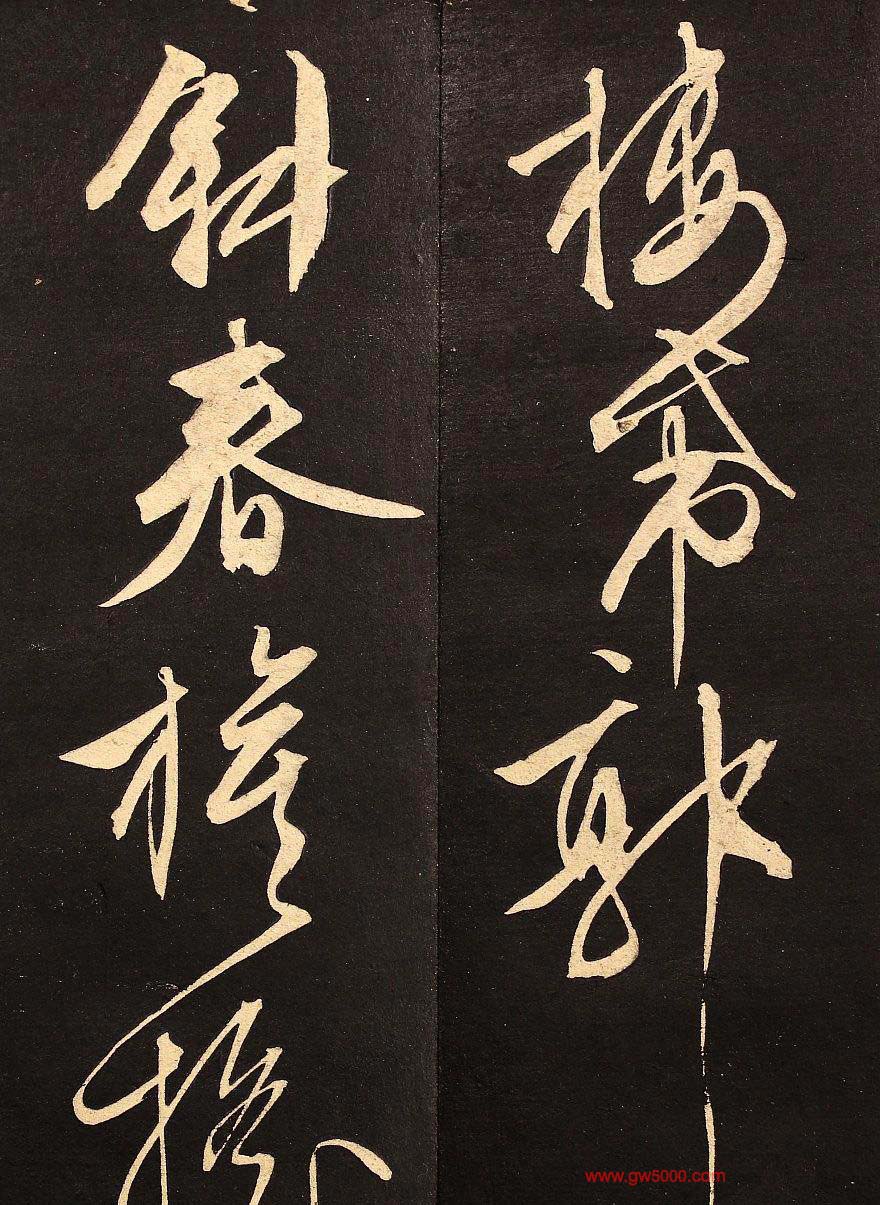 樓帶郭
斜春掛
www.gw5000.com